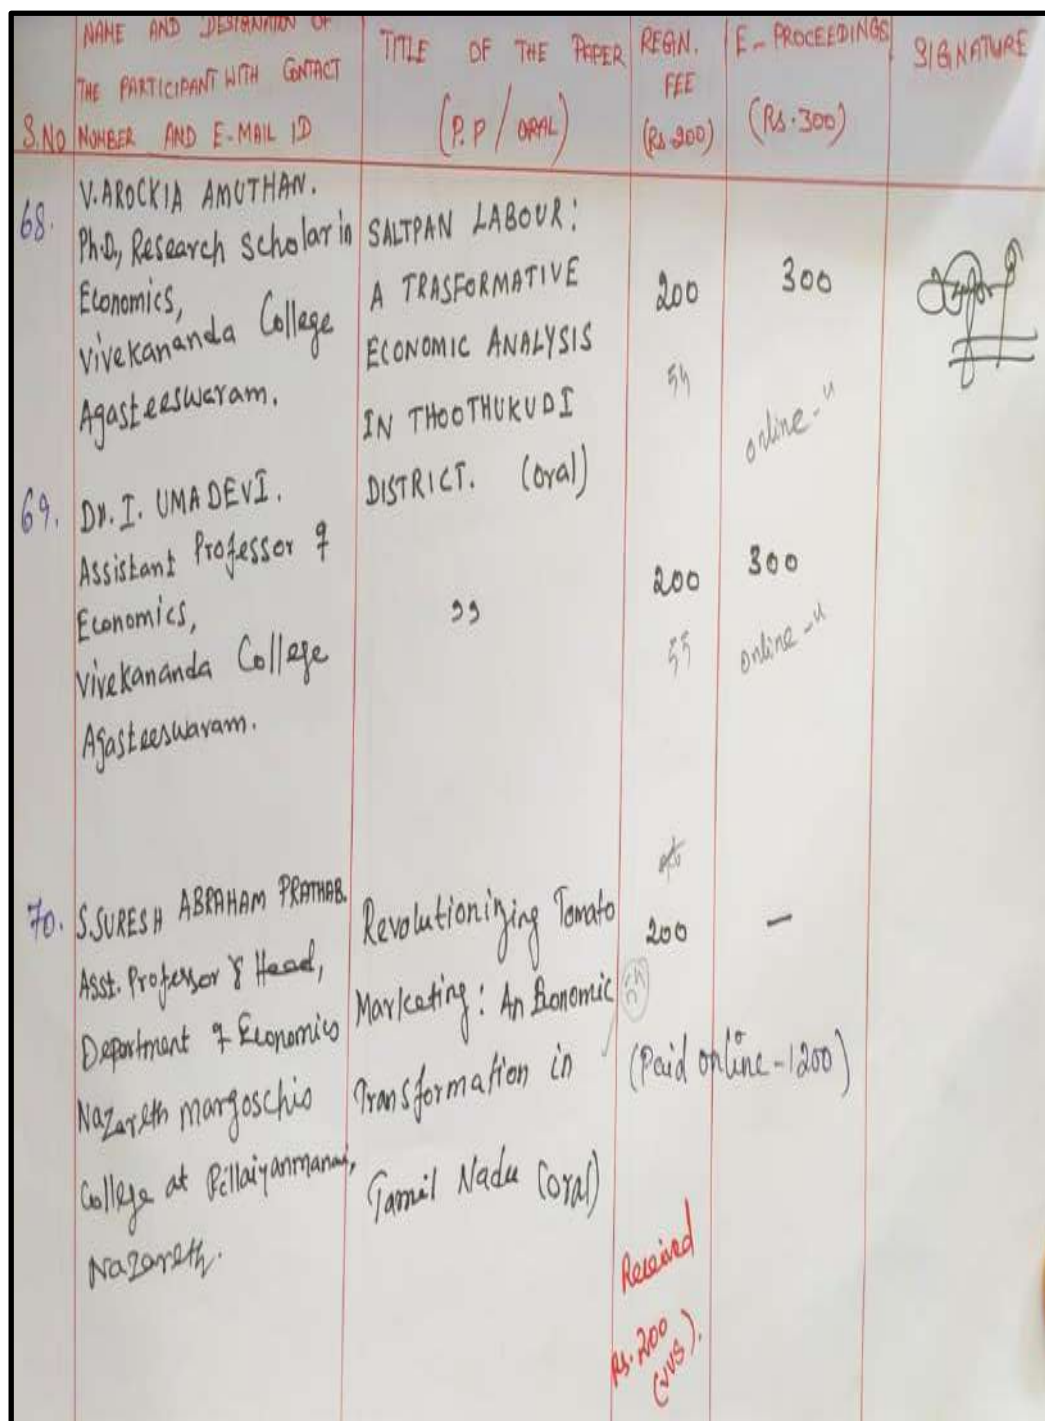 NAME AND DESIGNATION OF
THE PARTICIPANT WITH CONTACT
NUMBER AND E-MAIL ID
S.NO
TITLE OF THE PAPER
(P.P / ORAL)
REGN.
FEE
(Rs.200)
E-PROCEEDINGS
(Rs.300)
SIGNATURE
68.
V. AROCKIA AMUTHAN.
Ph.D., Research Scholar in
Economics,
Vivekananda College
Agasteeswaram.
SALTPAN LABOUR:
A TRASFORMATIVE
ECONOMIC ANALYSIS
IN THOOTHUKUDI
DISTRICT. (Oral)
200
300
online - "
69.
Dr. I. UMA DEVI.
Assistant Professor of
Economics,
Vivekananda College
Agasteeswaram.
"
200
300
online - "
70.
S. SURESH ABRAHAM PRATHAB.
Asst. Professor & Head,
Department of Economics
Nazareth margoschis
College at Pillaiyanmanai,
Nazareth.
Revolutionizing Tomato
Marketing: An Economic
Transformation in
Tamil Nadu (Oral)
200
—
(Paid online - 1200)
Received
Rs.200
(VVS).